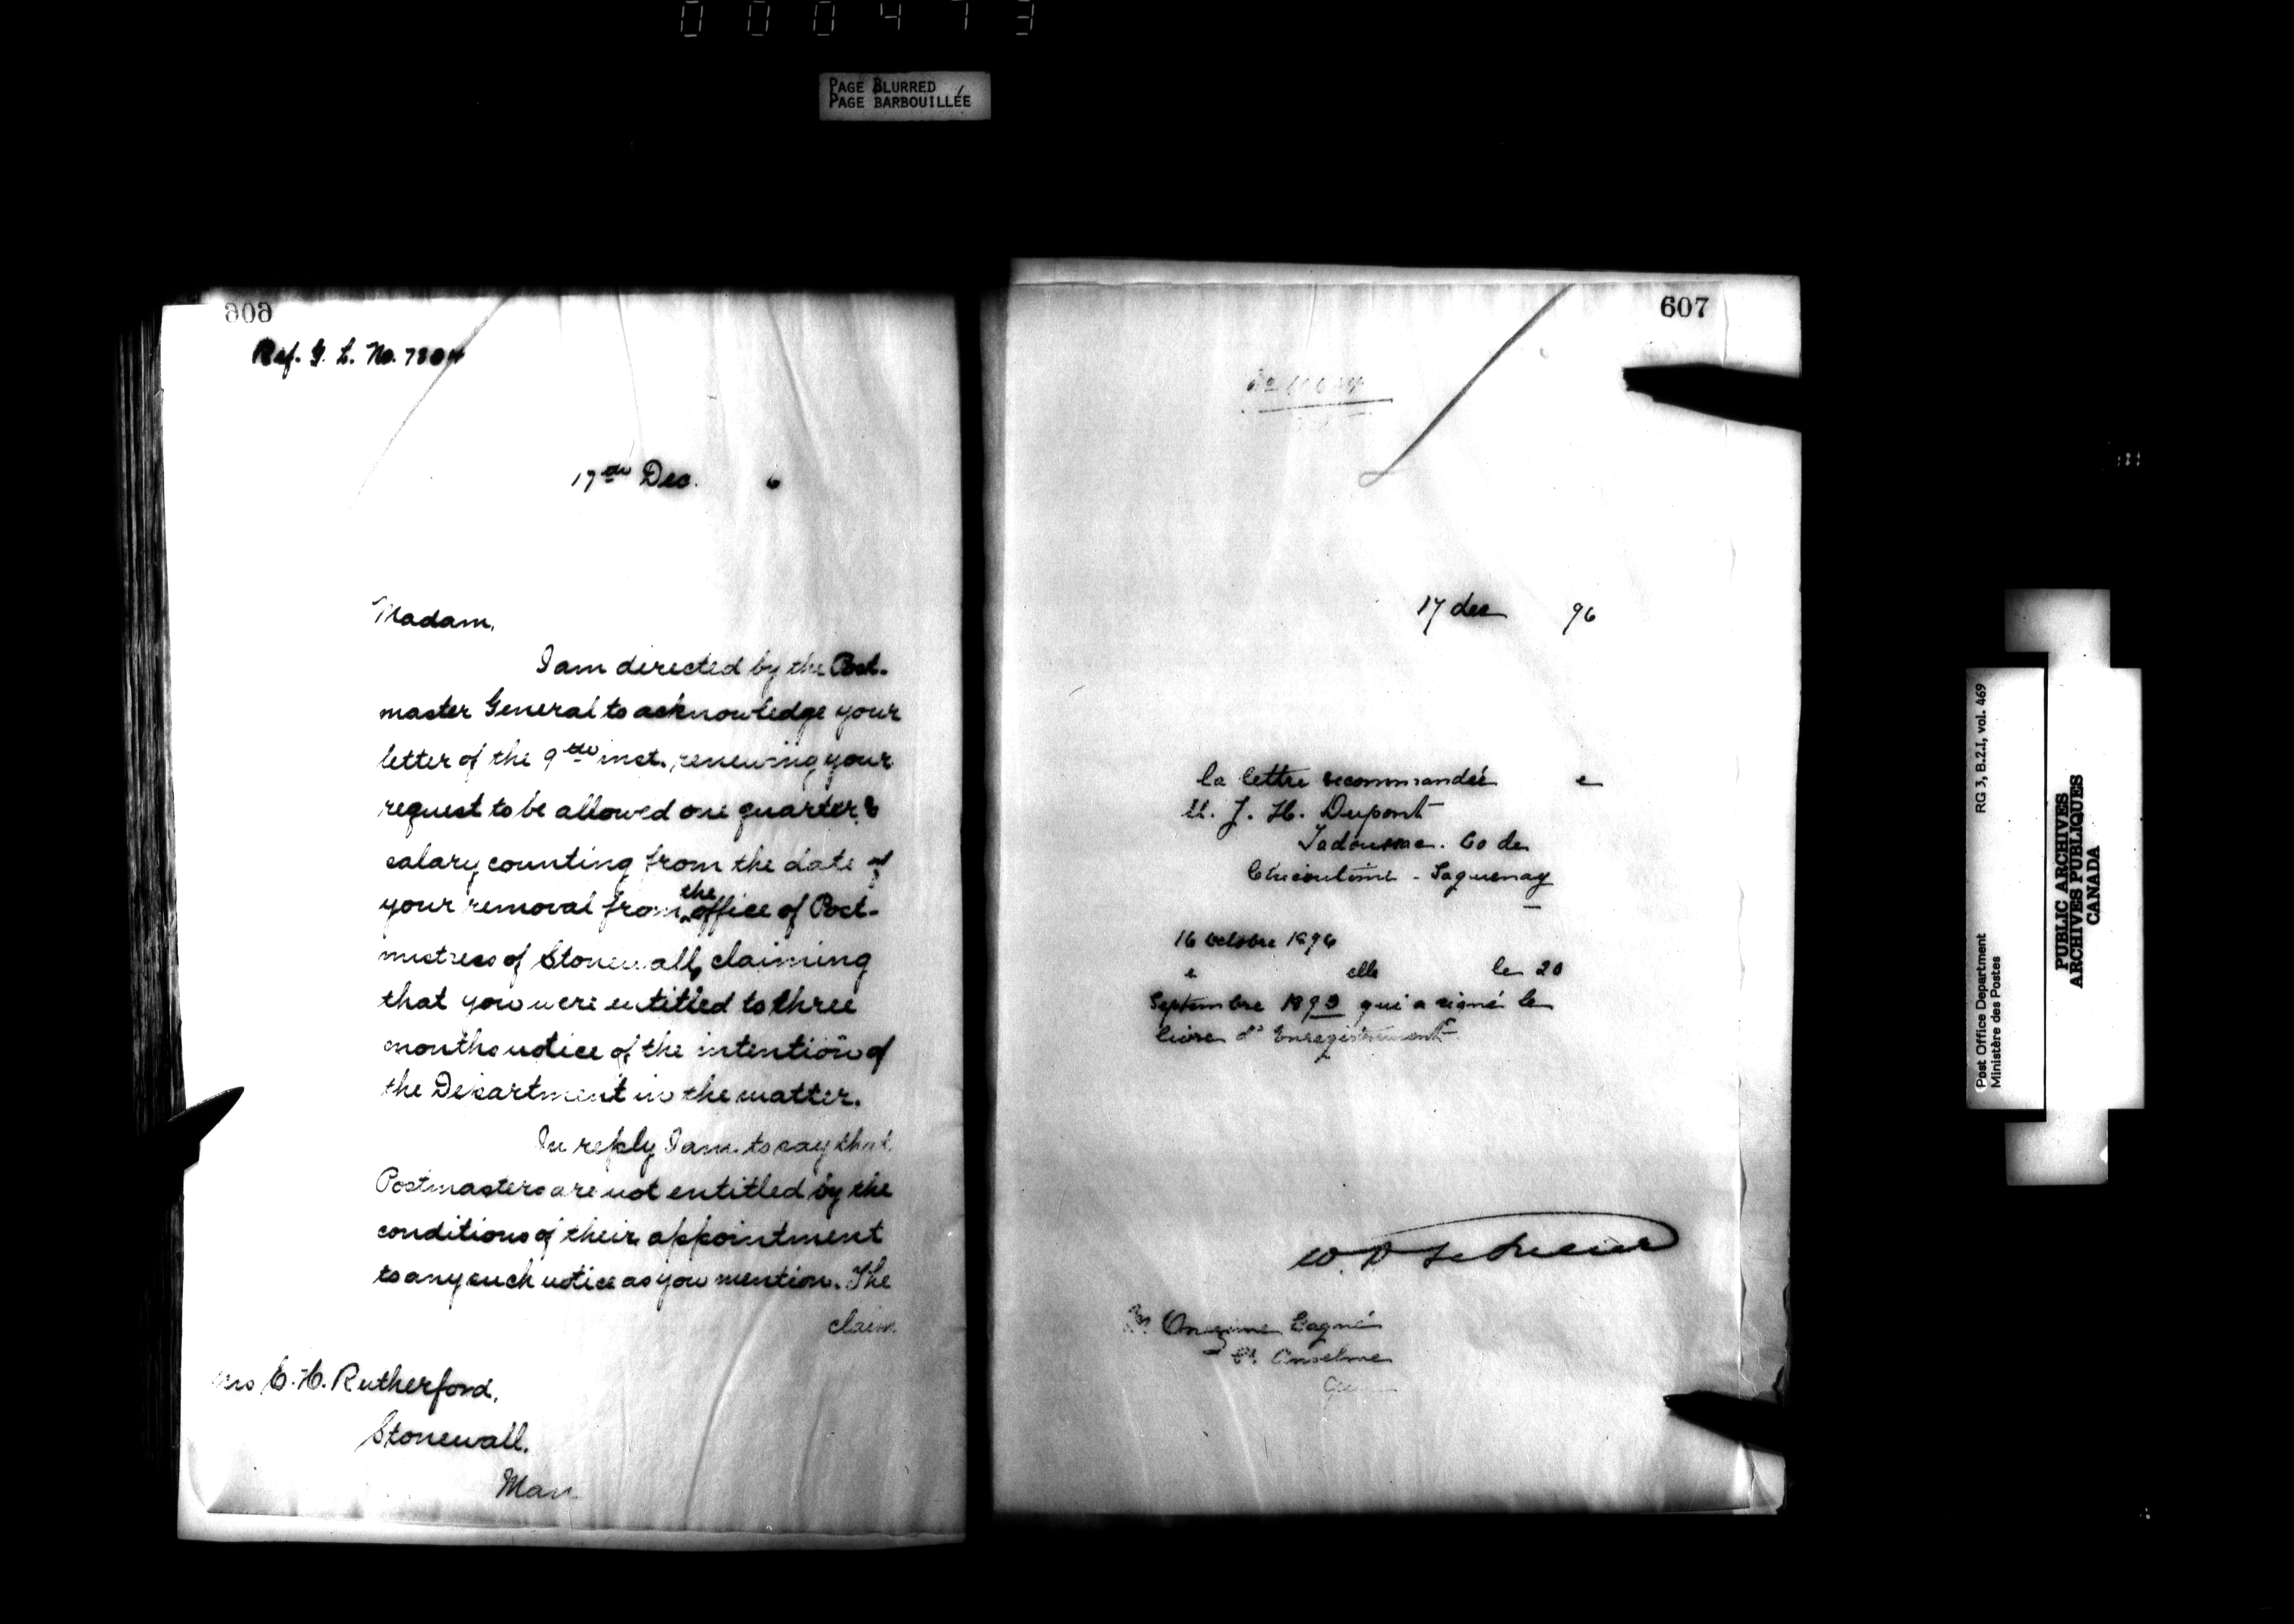 000473
PAGE BLURRED
PAGE BARBOUILLÉE
606
Ref. G. L. No. 7804
17th Dec. 6
Madam,
I am directed by the Post-
master General to acknowledge your
letter of the 9th inst., renewing your
request to be allowed one quarter's
salary counting from the date of
your removal from the office of Post-
mistress of Stonewall, claiming
that you were entitled to three
months notice of the intention of
the Department in the matter.
In reply I am to say that
Postmasters are not entitled by the
conditions of their appointment
to any such notice as you mention. The
claim
Mrs E. H. Rutherford,
Stonewall.
Man
607
17 dec 96
la lettre recommandée e
J. H. Dupont
Tadoussac. Co de
Chicoutimi - Saguenay
16 octobre 1896
e elle le 20
Septembre 1893 qui a signé le
livre d'Enregistrement
W. D.
Onezime Gagné
St. Anselme
Que
RG 3, B.2.1, vol. 469
Post Office Department
Ministère des Postes
PUBLIC ARCHIVES
ARCHIVES PUBLIQUES
CANADA